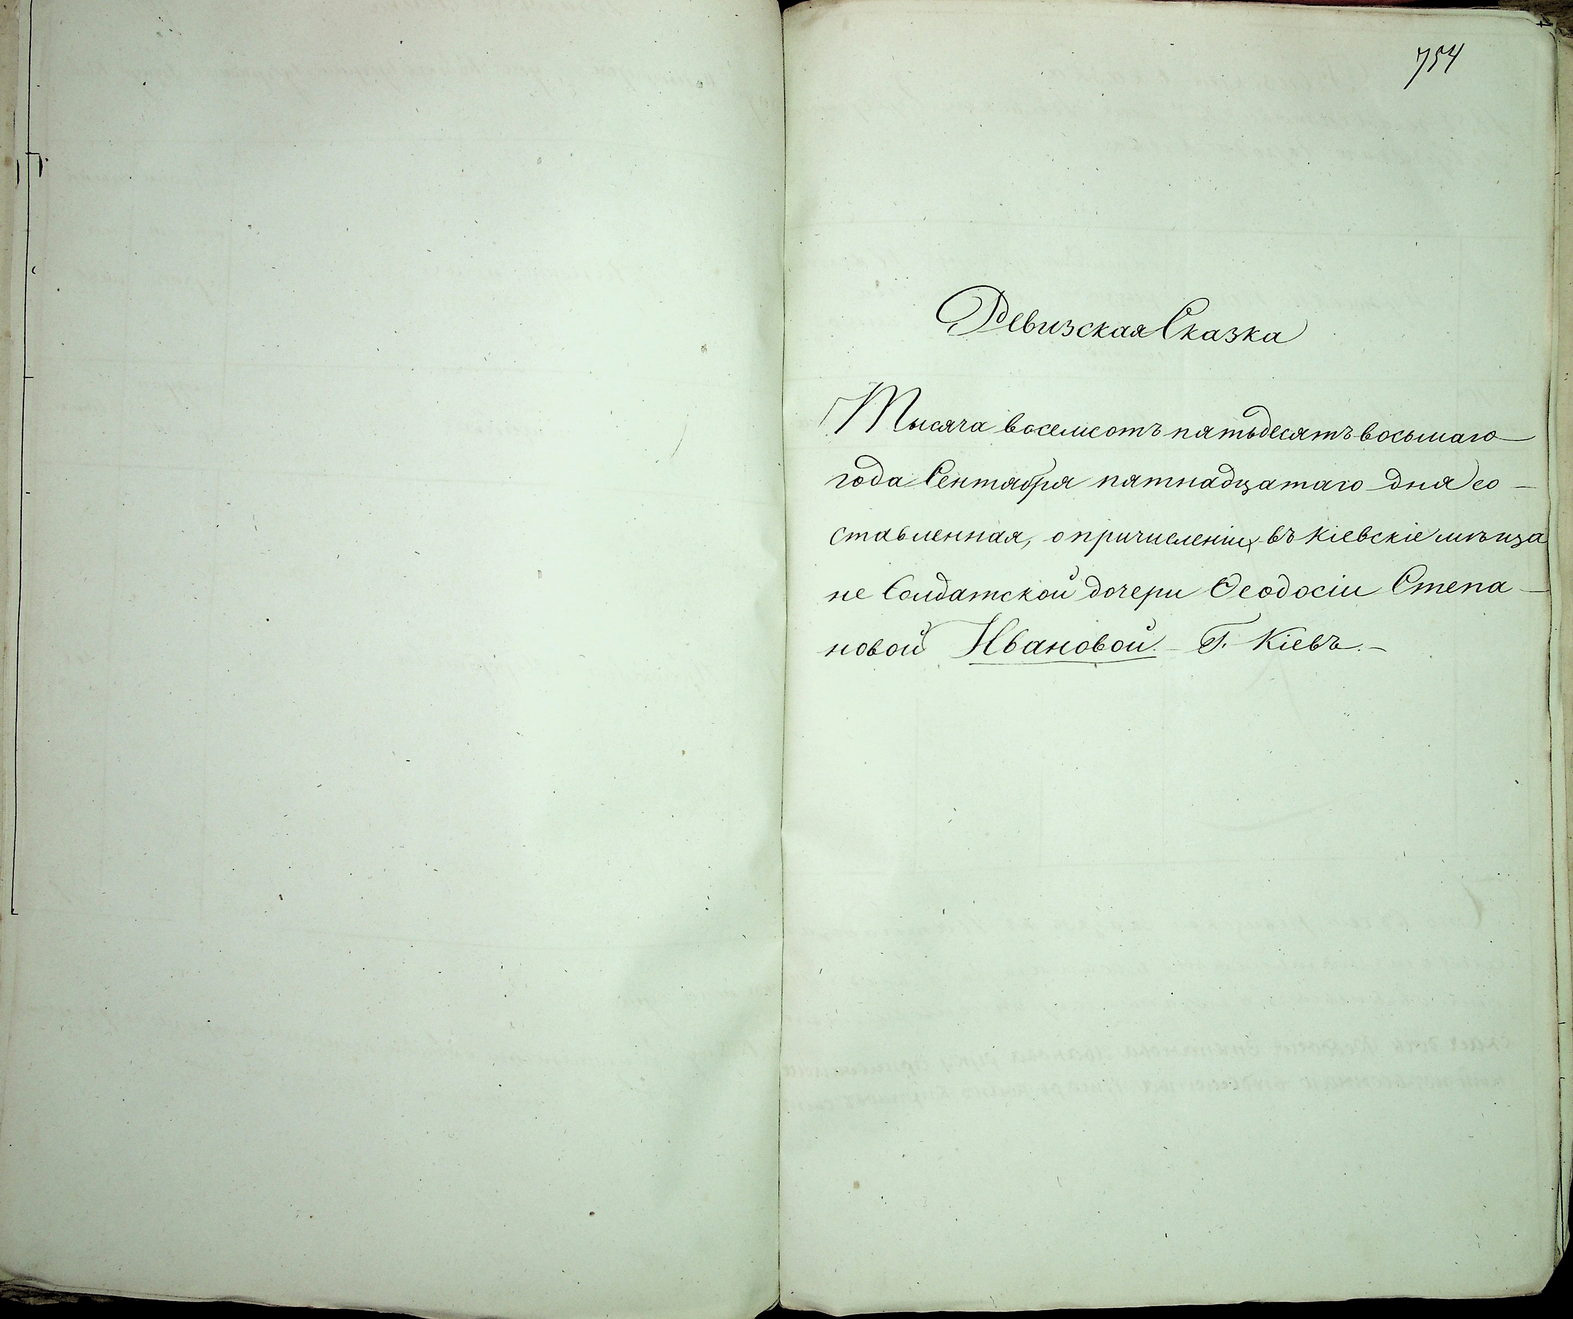 754
Ревизская Сказка
Тысяча восемсотъ пятьдесятъ восьмаго
года Сентября пятнадцатаго дня со-
ставленная, о причисленіи въ Кіевскіе мѣща
не Солдатской дочери Ѳеодосіи Степа-
новой Ивановой. - Г. Кіевъ. -